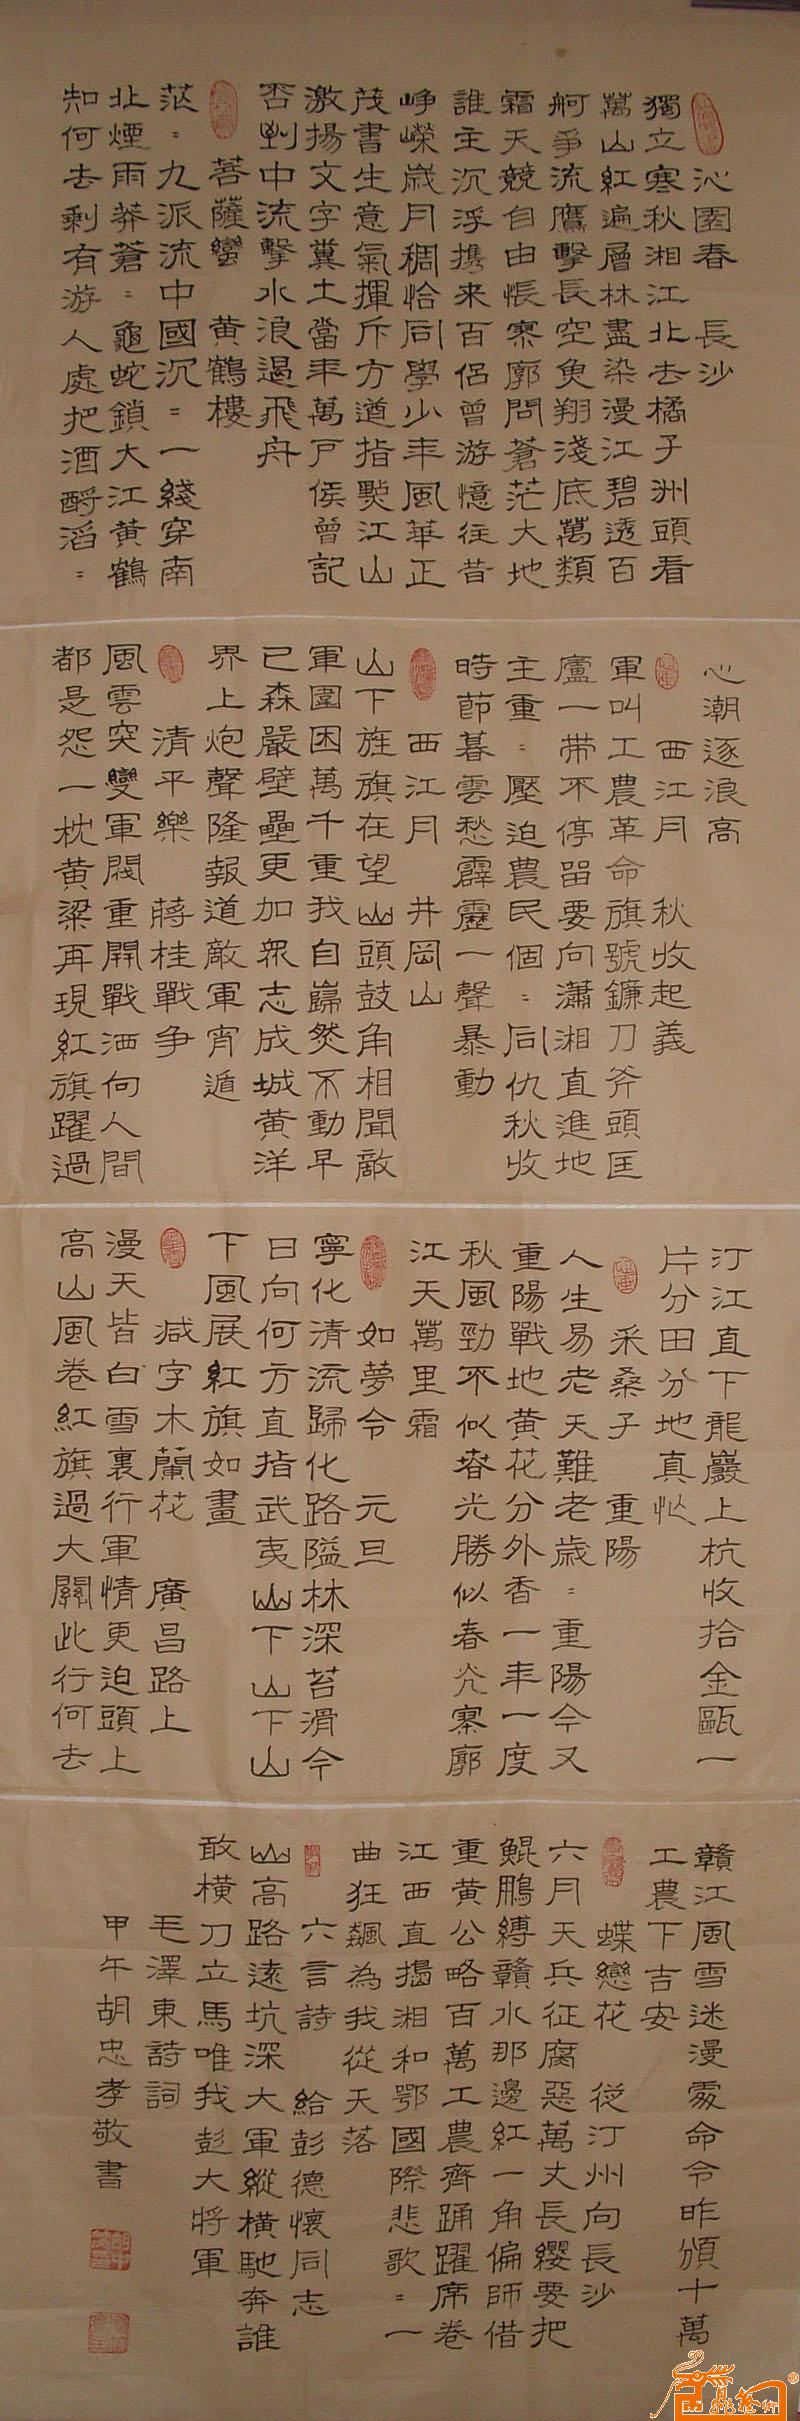 沁園春　長沙
獨立寒秋湘江北去橘子洲頭看
萬山紅遍層林盡染漫江碧透百
舸爭流鷹擊長空魚翔淺底萬類
霜天競自由悵寥廓問蒼茫大地
誰主沉浮攜来百侣曾游憶往昔
崢嶸歲月稠恰同學少年風華正
茂書生意氣揮斥方遒指點江山
激揚文字糞土當年萬户侯曾記
否到中流擊水浪遏飛舟
菩薩蠻　黄鶴樓
茫〻九派流中國沉〻一綫穿南
北煙雨莽蒼〻龜蛇鎖大江黄鶴
知何去剩有游人處把酒酹滔〻
心潮逐浪高
西江月　秋收起義
軍叫工農革命旗號鐮刀斧頭匡
廬一帶不停留要向瀟湘直進地
主重〻壓迫農民個〻同仇秋收
時節暮雲愁霹靂一聲暴動
西江月　井岡山
山下旌旗在望山頭鼓角相聞敵
軍圍困萬千重我自巋然不動早
已森嚴壁壘更加衆志成城黄洋
界上炮聲隆報道敵軍宵遁
清平樂　蔣桂戰争
風雲突變軍閥重開戰洒向人間
都是怨一枕黄粱再現紅旗躍過
汀江直下龍巖上杭收拾金甌一
片分田分地真忙
采桑子　重陽
人生易老天難老歲〻重陽今又
重陽戰地黄花分外香一年一度
秋風勁不似春光勝似春光寥廓
江天萬里霜
如夢令　元旦
寧化清流歸化路隘林深苔滑今
日向何方直指武夷山下山下山
下風展紅旗如畫
减字木蘭花　廣昌路上
漫天皆白雪裏行軍情更迫頭上
高山風卷紅旗過大關此行何去
贛江風雪迷漫處命令昨頒十萬
工農下吉安
蝶戀花　從汀州向長沙
六月天兵征腐惡萬丈長纓要把
鯤鵬縛贛水那邊紅一角偏師借
重黄公略百萬工農齊踴躍席卷
江西直搗湘和鄂國際悲歌〻一
曲狂飆為我從天落
六言詩　給彭德懷同志
山高路遠坑深大軍縱横馳奔誰
敢横刀立馬唯我彭大將軍
毛澤東詩詞
甲午胡忠孝敬書